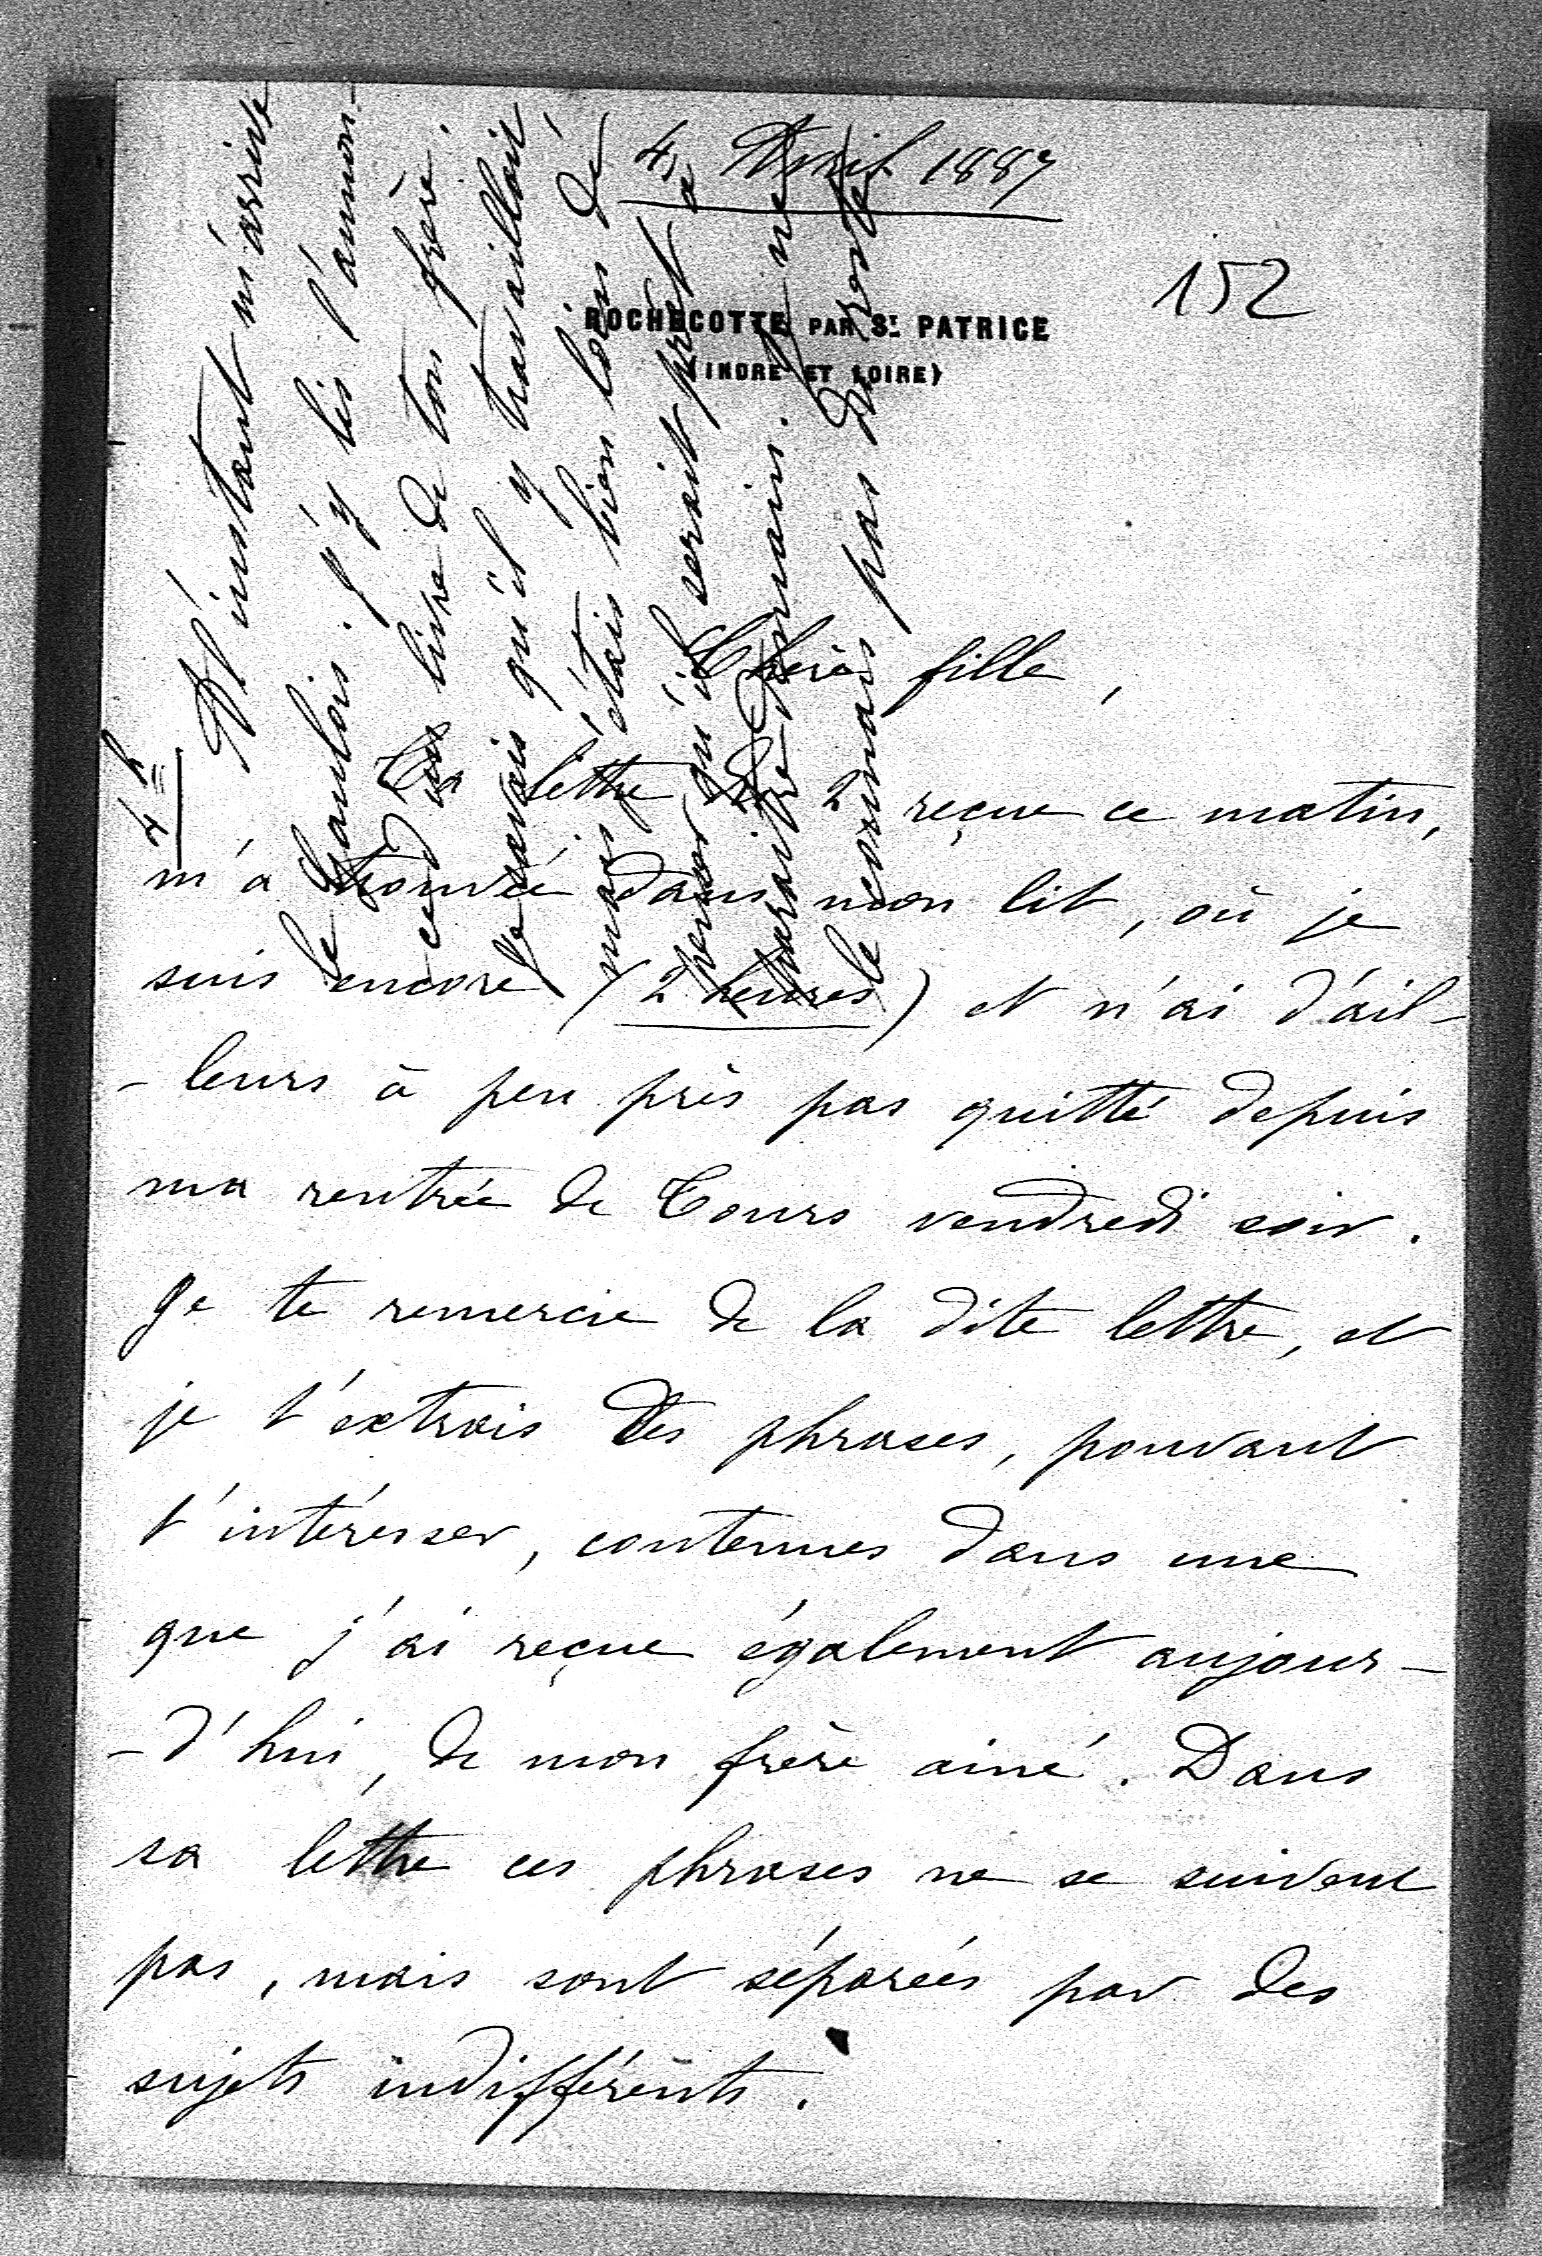 4 Avril 1887
152
ROCHECOTTE PAR ST. PATRICE
(INDRE ET LOIRE)
Chère fille,
Ta lettre du 2 reçue ce matin,
m'a trouvée dans mon lit, où je
suis encore (2 heures) et n'ai d'ail-
-leurs à peu près pas quitté depuis
ma rentrée de Tours vendredi soir.
Je te remercie de la dite lettre, et
je t'extrais des phrases, pouvant
t'intéresser, contenues dans une
que j'ai reçue également aujour-
-d'hui, de mon frère ainé. Dans
sa lettre ces phrases ne se suivent
pas, mais sont séparées par des
sujets indifférents.
4 h
A l'instant m'arrive
le Gaulois. J'y lis l'annon-
ce d'un livre de ton frère.
Je savais qu'il y travaillait
mais j'étais bien loin de
penser qu'il serait prêt à
paraître demain. Je ne
le connais pas du reste